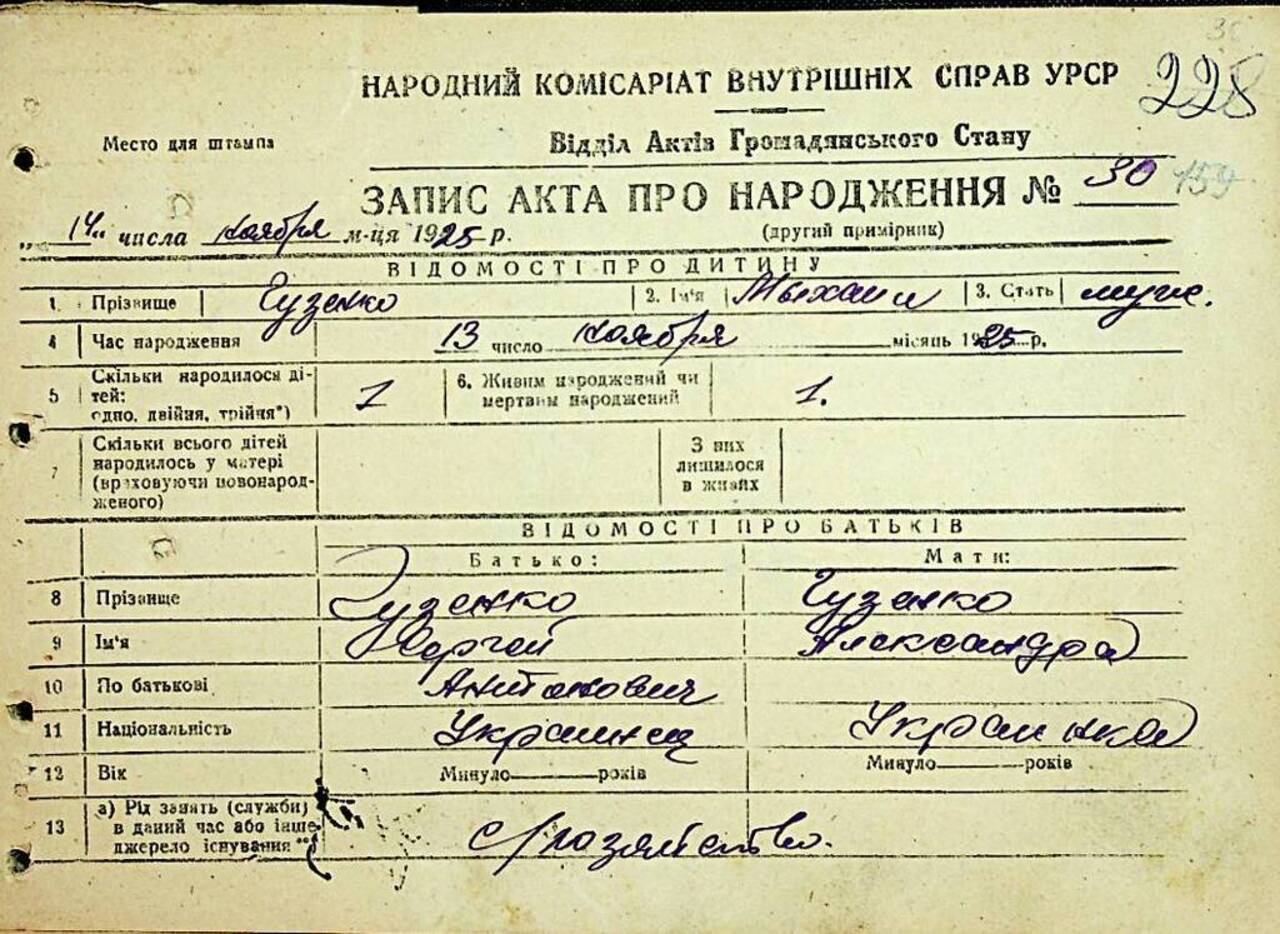 30
НАРОДНИЙ КОМІСАРІАТ ВНУТРІШНІХ СПРАВ УРСР 228
Место для штампа
Відділ Актів Громадянського Стану
ЗАПИС АКТА ПРО НАРОДЖЕННЯ № 30 159
(другий примірник)
„14" числа ноября м-ця 1925 р.
ВІДОМОСТІ ПРО ДИТИНУ
1. Прізвище Гузенко 2. Ім'я Мыхаил 3. Стать муж.
4 Час народження 13 число ноября місяць 1925 р.
5 Скільки народилося ді-
тей:
одно, двійня, трійня*) 1 6. Живим народжений чи
мертвим народжений 1.
7 Скільки всього дітей
народилось у матері
(враховуючи новонарод-
женого) З них
лишилося
в живих
ВІДОМОСТІ ПРО БАТЬКІВ
Батько: Мати:
8 Прізвище Гузенко Гузенко
9 Ім'я Сергей Александра
10 По батькові Антонович
11 Національність Украинец Украинка
12 Вік Минуло róків Минуло років
13 а) Рід занять (служби)
в даний час або інше
джерело існування**) с/хозяйство.